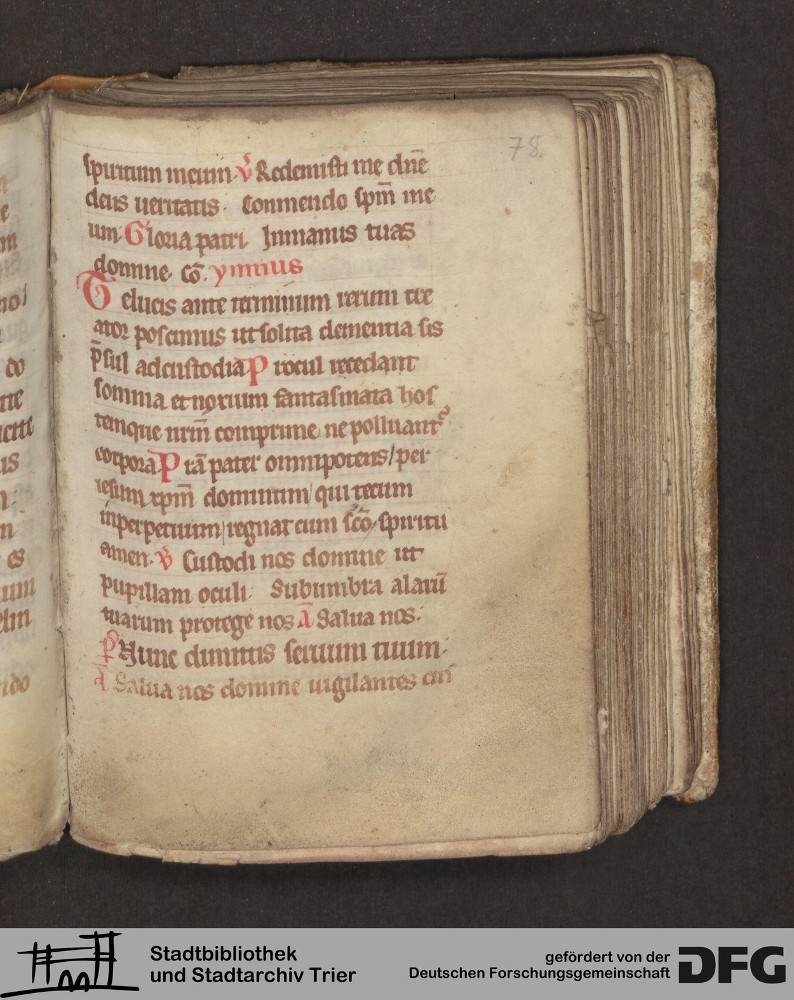 78.
spiritum meum v̊ Redemisti me dn̄e
deus ueritatis. Conmendo spm̄ me
um. Gloria patri Inmanus tuas
domine. co᷑. ymnus
Te lucis ante terminum rerum cre
ator poscimus ut solita clementia sis
p̄sul ad custodia P rocul recedant
somnia et noxium fantasmata hos
temque nrm̄ comprime ne polluant᷑
corpora P rā pater omnipotens/ per
iesum xpm̄ dominum/ qui tecum
inperpetuum/ regnat cum sc̄o/ spiritu
amen. v̊ Custodi nos domine ut
pupillam oculi Subumbra alarū
tuarum protege nos ā Salua nos.
Nunc dimittis seruum tuum.
a Salua nos domine uigilantes cu
no
co
es
ido
Stadtbibliothek
und Stadtarchiv Trier
gefördert von der
Deutschen Forschungsgemeinschaft
DFG